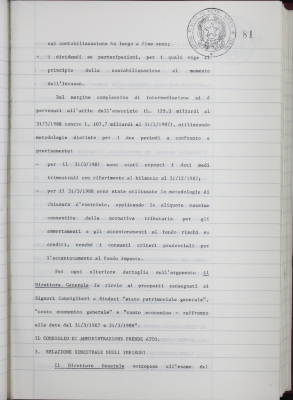 81
cui contabilizzazione ha luogo a fine anno;
- i dividendi su partecipazioni, per i quali vige il
principio della contabilizzazione al momento
dell'incasso.
Dal margine complessivo di intermediazione si è
pervenuti all'utile dell'esercizio (L. 125,3 miliardi al
31/3/1988 contro L. 107,7 miliardi al 31/3/1987), utilizzando
metodologie distinte per i due periodi a confronto e
precisamente:
- per il 31/3/1987 sono stati esposti i dati medi
trimestrali con riferimento al bilancio al 31/12/1987;
- per il 31/3/1988 sono state utilizzate le metodologie di
chiusura d'esercizio, applicando le aliquote massime
consentite dalla normativa tributaria per gli
ammortamenti e gli accantonamenti al fondo rischi su
crediti, nonché i consueti criteri prudenziali per
l'accantonamento al fondo imposte.
Per ogni ulteriore dettaglio sull'argomento il
Direttore Generale fa rinvio ai prospetti consegnati ai
Signori Consiglieri e Sindaci "stato patrimoniale generale",
"conto economico generale" e "conto economico - raffronto
alle date del 31/3/1987 e 31/3/1988".
IL CONSIGLIO DI AMMINISTRAZIONE PRENDE ATTO.
3. RELAZIONE SEMESTRALE SUGLI IMPIEGHI
Il Direttore Generale sottopone all'esame del